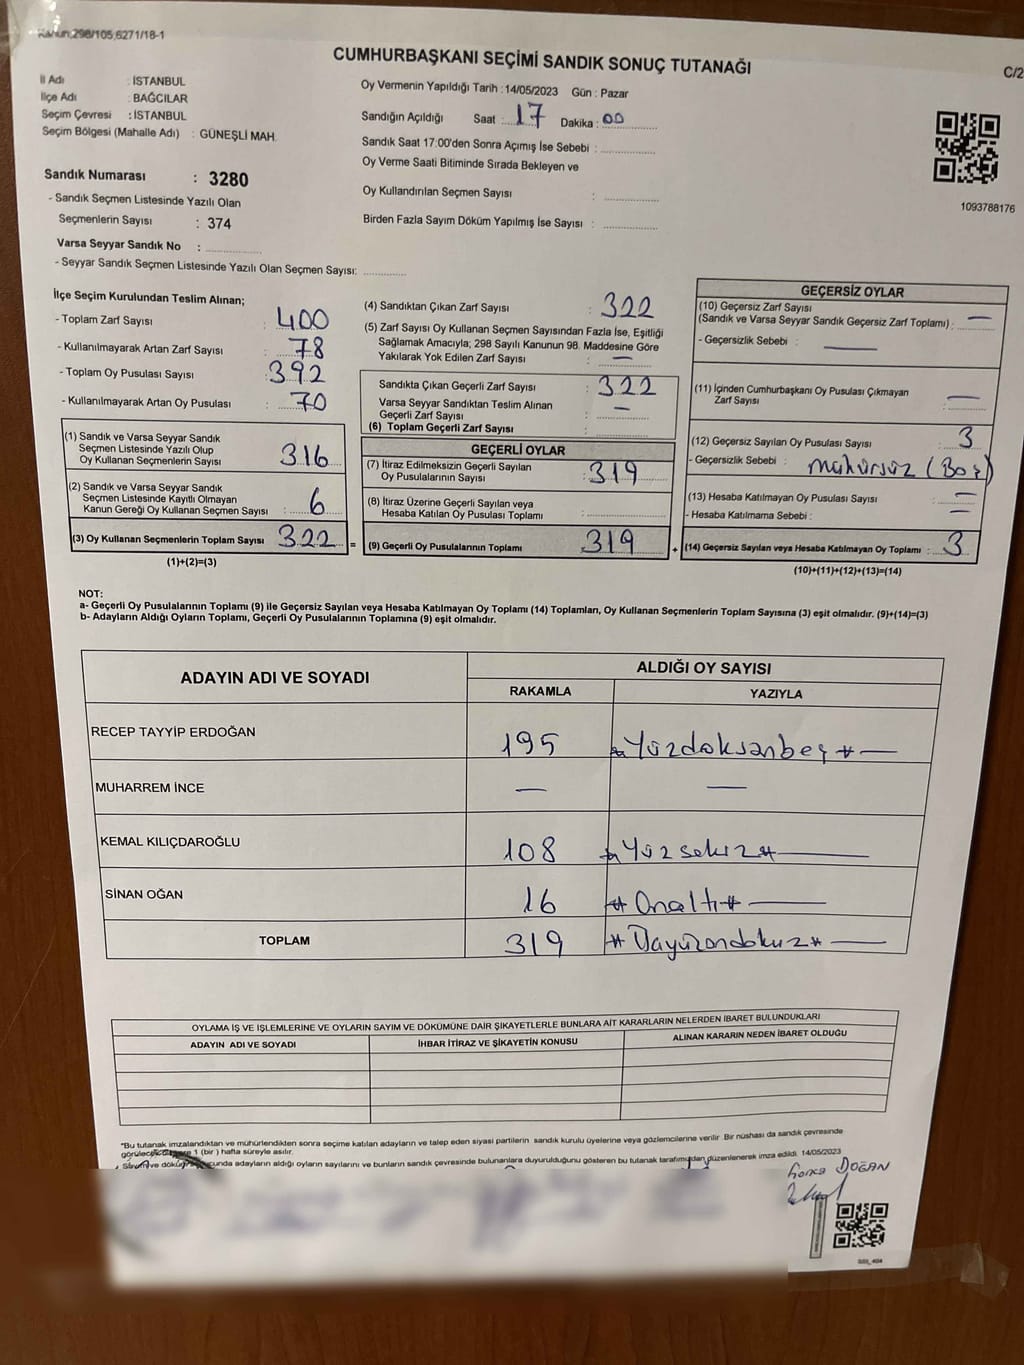 Kanun;298/105,6271/18-1
CUMHURBAŞKANI SEÇİMİ SANDIK SONUÇ TUTANAĞI
C/2
İl Adı : İSTANBUL
İlçe Adı : BAĞCILAR
Seçim Çevresi : İSTANBUL
Seçim Bölgesi (Mahalle Adı) : GÜNEŞLİ MAH.
Sandık Numarası : 3280
- Sandık Seçmen Listesinde Yazılı Olan
Seçmenlerin Sayısı : 374
Varsa Seyyar Sandık No :
- Seyyar Sandık Seçmen Listesinde Yazılı Olan Seçmen Sayısı:
Oy Vermenin Yapıldığı Tarih : 14/05/2023 Gün : Pazar
Sandığın Açıldığı Saat : 17 Dakika : 00
Sandık Saat 17:00'den Sonra Açımış İse Sebebi :
Oy Verme Saati Bitiminde Sırada Bekleyen ve
Oy Kullandırılan Seçmen Sayısı :
Birden Fazla Sayım Döküm Yapılmış İse Sayısı :
1093788176
İlçe Seçim Kurulundan Teslim Alınan;
- Toplam Zarf Sayısı : 400
- Kullanılmayarak Artan Zarf Sayısı : 78
- Toplam Oy Pusulası Sayısı : 392
- Kullanılmayarak Artan Oy Pusulası : 70
(1) Sandık ve Varsa Seyyar Sandık
Seçmen Listesinde Yazılı Olup
Oy Kullanan Seçmenlerin Sayısı : 316
(2) Sandık ve Varsa Seyyar Sandık
Seçmen Listesinde Kayıtlı Olmayan
Kanun Gereği Oy Kullanan Seçmen Sayısı : 6
(3) Oy Kullanan Seçmenlerin Toplam Sayısı : 322
(1)+(2)=(3)
=
(4) Sandıktan Çıkan Zarf Sayısı : 322
(5) Zarf Sayısı Oy Kullanan Seçmen Sayısından Fazla İse, Eşitliği
Sağlamak Amacıyla; 298 Sayılı Kanunun 98. Maddesine Göre
Yakılarak Yok Edilen Zarf Sayısı : —
Sandıkta Çıkan Geçerli Zarf Sayısı : 322
Varsa Seyyar Sandıktan Teslim Alınan
Geçerli Zarf Sayısı : —
(6) Toplam Geçerli Zarf Sayısı :
GEÇERLİ OYLAR
(7) İtiraz Edilmeksizin Geçerli Sayılan
Oy Pusulalarının Sayısı : 319
(8) İtiraz Üzerine Geçerli Sayılan ve
Hesaba Katılan Oy Pusulası Toplamı :
(9) Geçerli Oy Pusulalarının Toplamı : 319
+
GEÇERSİZ OYLAR
(10) Geçersiz Zarf Sayısı
(Sandık ve Varsa Seyyar Sandık Geçersiz Zarf Toplamı) : —
- Geçersizlik Sebebi : —
(11) İçinden Cumhurbaşkanı Oy Pusulası Çıkmayan
Zarf Sayısı : —
(12) Geçersiz Sayılan Oy Pusulası Sayısı : 3
- Geçersizlik Sebebi : mühürsüz (Boş)
(13) Hesaba Katılmayan Oy Pusulası Sayısı : —
- Hesaba Katılmama Sebebi : —
(14) Geçersiz Sayılan veya Hesaba Katılmayan Oy Toplamı : 3
(10)+(11)+(12)+(13)=(14)
NOT:
a- Geçerli Oy Pusulalarının Toplamı (9) ile Geçersiz Sayılan veya Hesaba Katılmayan Oy Toplamı (14) Toplamları, Oy Kullanan Seçmenlerin Toplam Sayısına (3) eşit olmalıdır. (9)+(14)=(3)
b- Adayların Aldığı Oyların Toplamı, Geçerli Oy Pusulalarının Toplamına (9) eşit olmalıdır.
ADAYIN ADI VE SOYADI ALDIĞI OY SAYISI
RAKAMLA YAZIYLA
RECEP TAYYİP ERDOĞAN 195 #Yüzdoksanbeş#—
MUHARREM İNCE — —
KEMAL KILIÇDAROĞLU 108 #Yüzsekiz#—
SİNAN OĞAN 16 #Onaltı#—
TOPLAM 319 #Üçyüzondokuz#—
OYLAMA İŞ VE İŞLEMLERİNE VE OYLARIN SAYIM VE DÖKÜMÜNE DAİR ŞİKAYETLERLE BUNLARA AİT KARARLARIN NELERDEN İBARET BULUNDUKLARI
ADAYIN ADI VE SOYADI İHBAR İTİRAZ VE ŞİKAYETİN KONUSU ALINAN KARARIN NEDEN İBARET OLDUĞU
"Bu tutanak imzalandıktan ve mühürlendikten sonra seçime katılan adayların ve talep eden siyasi partilerin sandık kurulu üyelerine veya gözlemcilerine verilir. Bir nüshası da sandık çevresinde
1 (bir ) hafta süreyle asılır.
adayların aldığı oyların sayılarını ve bunların sandık çevresinde bulunanlara duyurulduğunu gösteren bu tutanak tarafımızdan düzenlenerek imza edildi. 14/05/2023
DOĞAN